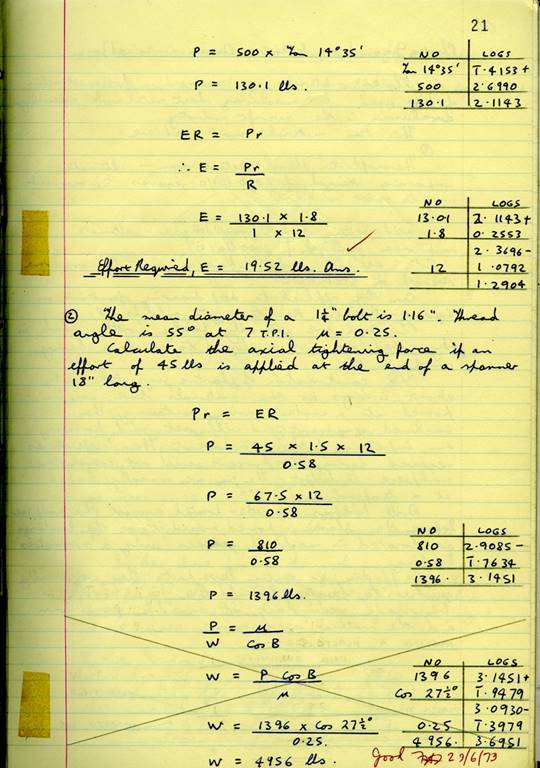 21
P = 500 x Tan 14°35'
NO LOGS
Tan 14°35' 1̅·4153+
500 2·6990
130·1 2·1143
P = 130·1 lbs.
ER = Pr
∴ E = Pr
R
E = 130·1 x 1·8
1 x 12
NO LOGS
13·01 2·1143+
1·8 0·2553
2·3696-
12 1·0792
1·2904
Effort Required, E = 19·52 lbs. Ans.
② The mean diameter of a 1¼" bolt is 1·16". Thread
angle is 55° at 7 T.P.I. μ = 0·25.
Calculate the axial tightening force if an
effort of 45 lbs is applied at the end of a spanner
18" long.
Pr = ER
P = 45 x 1·5 x 12
0·58
P = 67·5 x 12
0·58
P = 810
0·58
NO LOGS
810 2·9085-
0·58 1̅·7634
1396· 3·1451
P = 1396 lbs.
P = μ
W CosB
W = P CosB
μ
NO LOGS
1396 3·1451+
Cos 27½° 1̅·9479
3·0930-
0·25 1̅·3979
4956· 3·6951
W = 1396 x Cos 27½°
0·25.
W = 4956 lbs.
Good 29/6/73